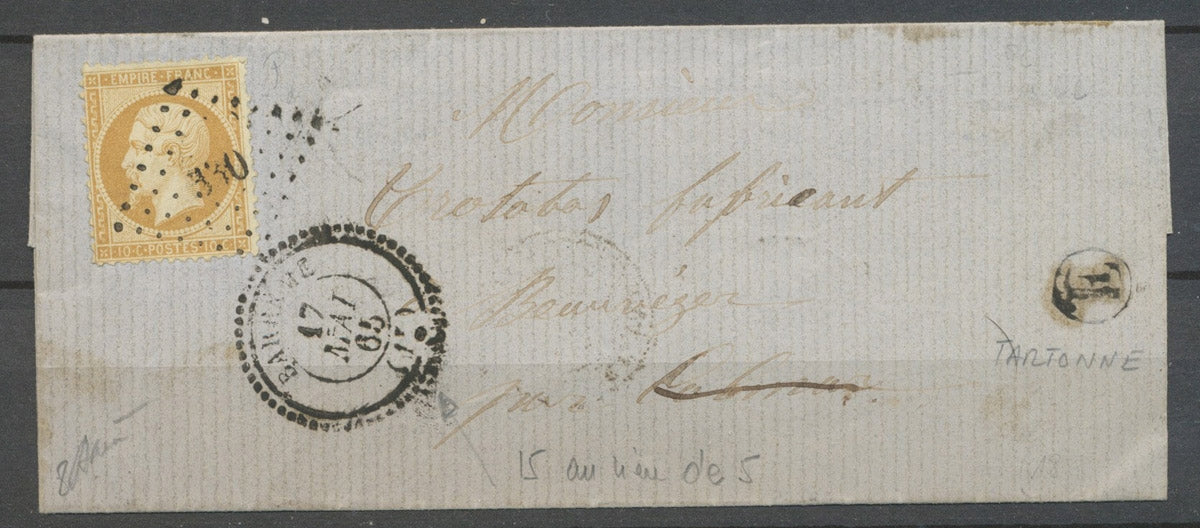 EMPIRE FRANC
10 C. POSTES 10 C.
330
Monsieur
Trotabas fabricant
Beauvezer
par Colmar
BARRÊME
17
MAI
65
E
TARTONNE
15 au lieu de 5